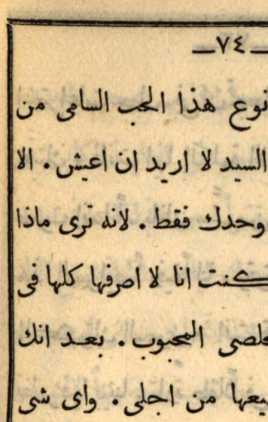 —٧٤—
نوع هذا الحب السامى من
السيد لا اريد ان اعيش. الا
وحدك فقط. لانه ترى ماذا
كنت انا لا اصرفها كلها فى
المحبوب. بعد انك
من اجلى. واى شى